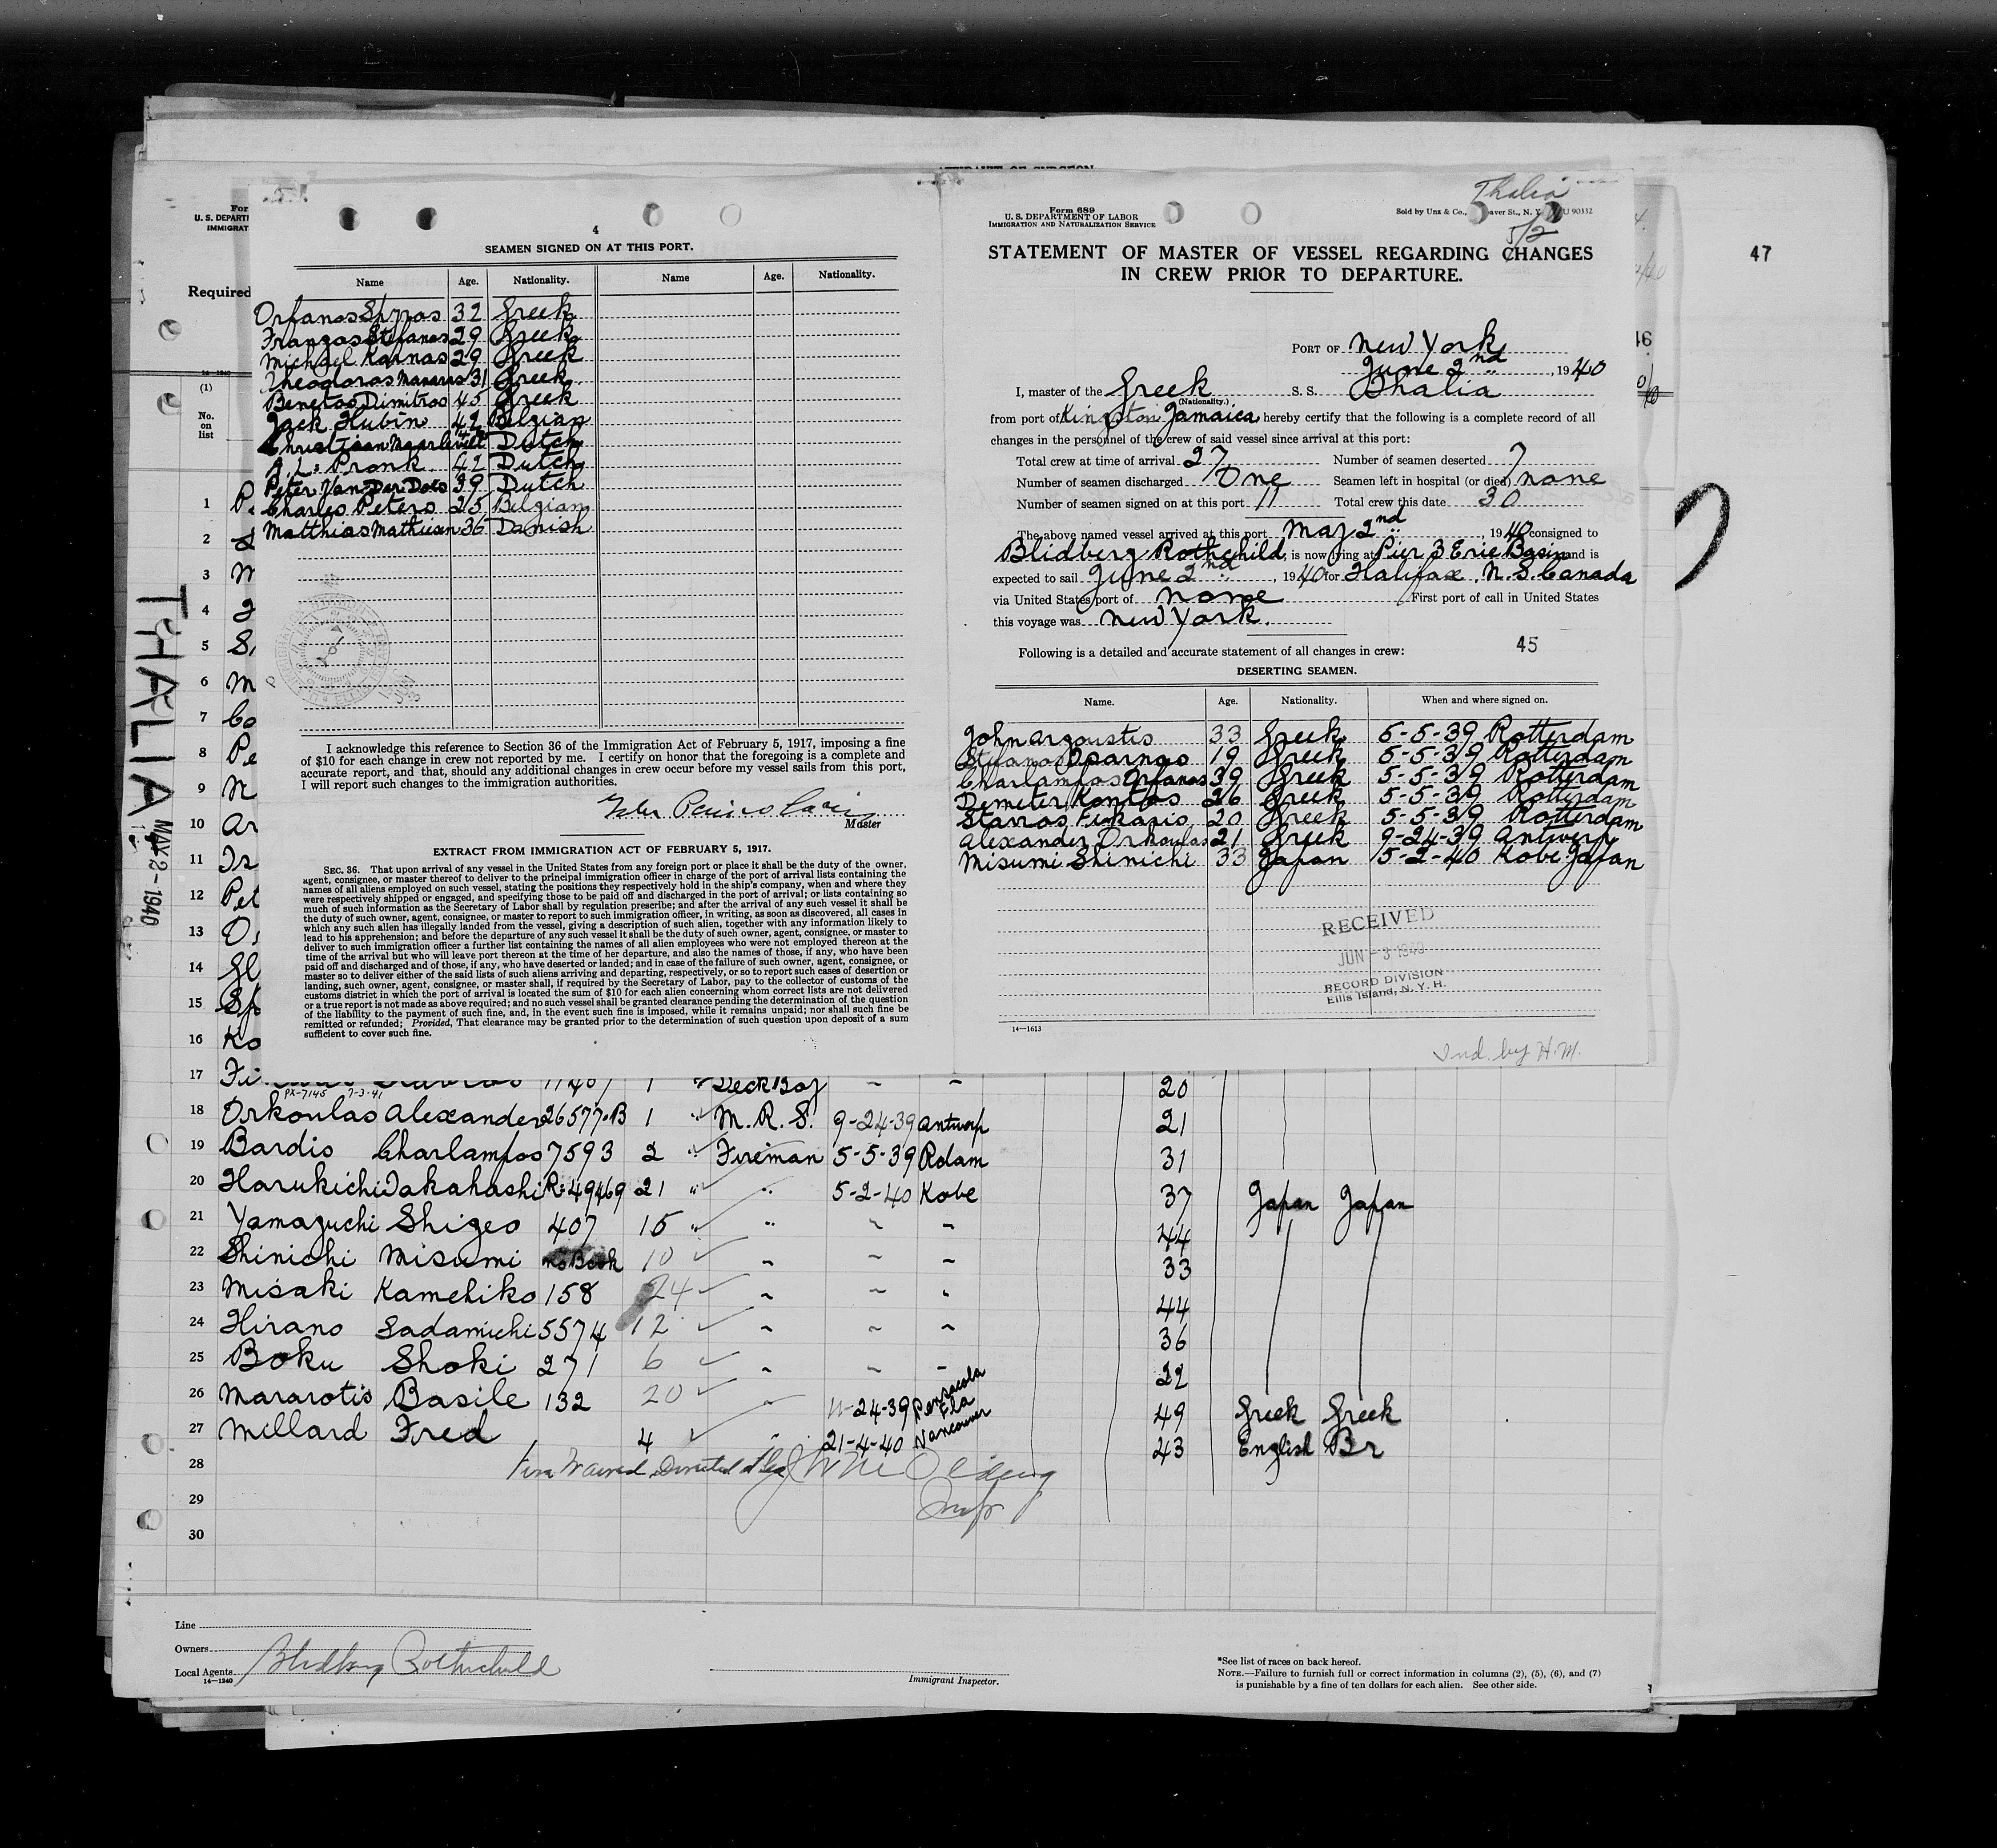 AFFIDAVIT OF SURGEON
47
For
U. S. DEPARTM
IMMIGRAT
Required
14—1240
(1)
No.
on
list
THALIA
MAY 2 - 1940
4
SEAMEN SIGNED ON AT THIS PORT.
Name Age. Nationality. Name Age. Nationality.
Orfanos Spyros 32 Greek
Franzos Stefanos 29 Greek
Michael Karnas 29 Greek
Theodoros 31 Greek
Benetos Dimitros 45 Greek
Jack Hubin 42 Belgian
Christiaan Dutch
J. L. Pronk 42 Dutch
Peter Van Der Does 39 Dutch
Charles Peters 25 Belgian
Matthias Mathiesen 36 Danish
I acknowledge this reference to Section 36 of the Immigration Act of February 5, 1917, imposing a fine
of $10 for each change in crew not reported by me. I certify on honor that the foregoing is a complete and
accurate report, and that, should any additional changes in crew occur before my vessel sails from this port,
I will report such changes to the immigration authorities.
Master
EXTRACT FROM IMMIGRATION ACT OF FEBRUARY 5, 1917.
SEC. 36. That upon arrival of any vessel in the United States from any foreign port or place it shall be the duty of the owner,
agent, consignee, or master thereof to deliver to the principal immigration officer in charge of the port of arrival lists containing the
names of all aliens employed on such vessel, stating the positions they respectively hold in the ship's company, when and where they
were respectively shipped or engaged, and specifying those to be paid off and discharged in the port of arrival; or lists containing so
much of such information as the Secretary of Labor shall by regulation prescribe; and after the arrival of any such vessel it shall be
the duty of such owner, agent, consignee, or master to report to such immigration officer, in writing, as soon as discovered, all cases in
which any such alien has illegally landed from the vessel, giving a description of such alien, together with any information likely to
lead to his apprehension; and before the departure of any such vessel it shall be the duty of such owner, agent, consignee, or master to
deliver to such immigration officer a further list containing the names of all alien employees who were not employed thereon at the
time of the arrival but who will leave port thereon at the time of her departure, and also the names of those, if any, who have been
paid off and discharged and of those, if any, who have deserted or landed; and in case of the failure of such owner, agent, consignee, or
master so to deliver either of the said lists of such aliens arriving and departing, respectively, or so to report such cases of desertion or
landing, such owner, agent, consignee, or master shall, if required by the Secretary of Labor, pay to the collector of customs of the
customs district in which the port of arrival is located the sum of $10 for each alien concerning whom correct lists are not delivered
or a true report is not made as above required; and no such vessel shall be granted clearance pending the determination of the question
of the liability to the payment of such fine, and, in the event such fine is imposed, while it remains unpaid; nor shall such fine be
remitted or refunded; Provided, That clearance may be granted prior to the determination of such question upon deposit of a sum
sufficient to cover such fine.
Thalia
5/2
Form 689
U. S. DEPARTMENT OF LABOR
IMMIGRATION AND NATURALIZATION SERVICE
Sold by Unz & Co., aver St., N. Y. U 90332
STATEMENT OF MASTER OF VESSEL REGARDING CHANGES
IN CREW PRIOR TO DEPARTURE.
PORT OF New York
June 2nd, 1940
I, master of the Greek S. S. Thalia
(Nationality.)
from port of Kingston Jamaica, hereby certify that the following is a complete record of all
changes in the personnel of the crew of said vessel since arrival at this port:
Total crew at time of arrival 27 Number of seamen deserted 7
Number of seamen discharged One Seamen left in hospital (or died) none
Number of seamen signed on at this port 11 Total crew this date 30
The above named vessel arrived at this port May 2nd, 1940 consigned to
Blidberg Rothchild, is now lying at Pier 3 Erie Basin and is
expected to sail June 2nd, 1940 for Halifax. N. S. Canada
via United States port of none First port of call in United States
this voyage was New York.
Following is a detailed and accurate statement of all changes in crew: 45
DESERTING SEAMEN.
Name. Age. Nationality. When and where signed on.
John Argoustis 33 Greek 5-5-39 Rotterdam
Stefanos Psarnos 19 Greek 5-5-39 Rotterdam
Charlampos Orfanos 39 Greek 5-5-39 Rotterdam
Demeter Konitos 26 Greek 5-5-39 Rotterdam
Stavros Finkaris 20 Greek 5-5-39 Rotterdam
Alexander Orkoulas 21 Greek 9-24-39 Antwerp
Misumi Shinichi 33 Japan 5-2-40 Kobe Japan
RECEIVED
JUN - 3 1940
RECORD DIVISION
Ellis Island, N. Y. H.
14—1613
Ind. by H. M.
1 P
2
3 M
4
5 S
6 M
7 Co
8 Pe
9 N
10 Ar
11 Is
12 Pet
13 O
14 Gl
15 Sp
16 Ko
17 Fi 1 Deck Boy 20
PX-7145 7-3-41
18 Orkoulas Alexander 26577-B 1 " M. R. S. 9-24-39 Antwerp 21
19 Bardis Charlampos 7593 2 " Fireman 5-5-39 Rdam 31
20 Harukichi Takahashi R-49469 21 " " 5-2-40 Kobe 37 Japan Japan
21 Yamaguchi Shigeo 407 15 " " 44
22 Shinichi Misumi no Book 10 33
23 Misaki Kamehiko 158 24 44
24 Hirano Sadamichi 5574 12 36
25 Boku Shoki 271 6 22
26 Mararotis Basile 132 20 11-24-39 Pensacola Fla 49 Greek Greek
27 Millard Fred 4 21-4-40 Vancouver 43 English Br
28
29 Insp
30
Line
Owners
Local Agents Blidberg Rothschild
14—1240
Immigrant Inspector.
*See list of races on back hereof.
NOTE.—Failure to furnish full or correct information in columns (2), (5), (6), and (7)
is punishable by a fine of ten dollars for each alien. See other side.